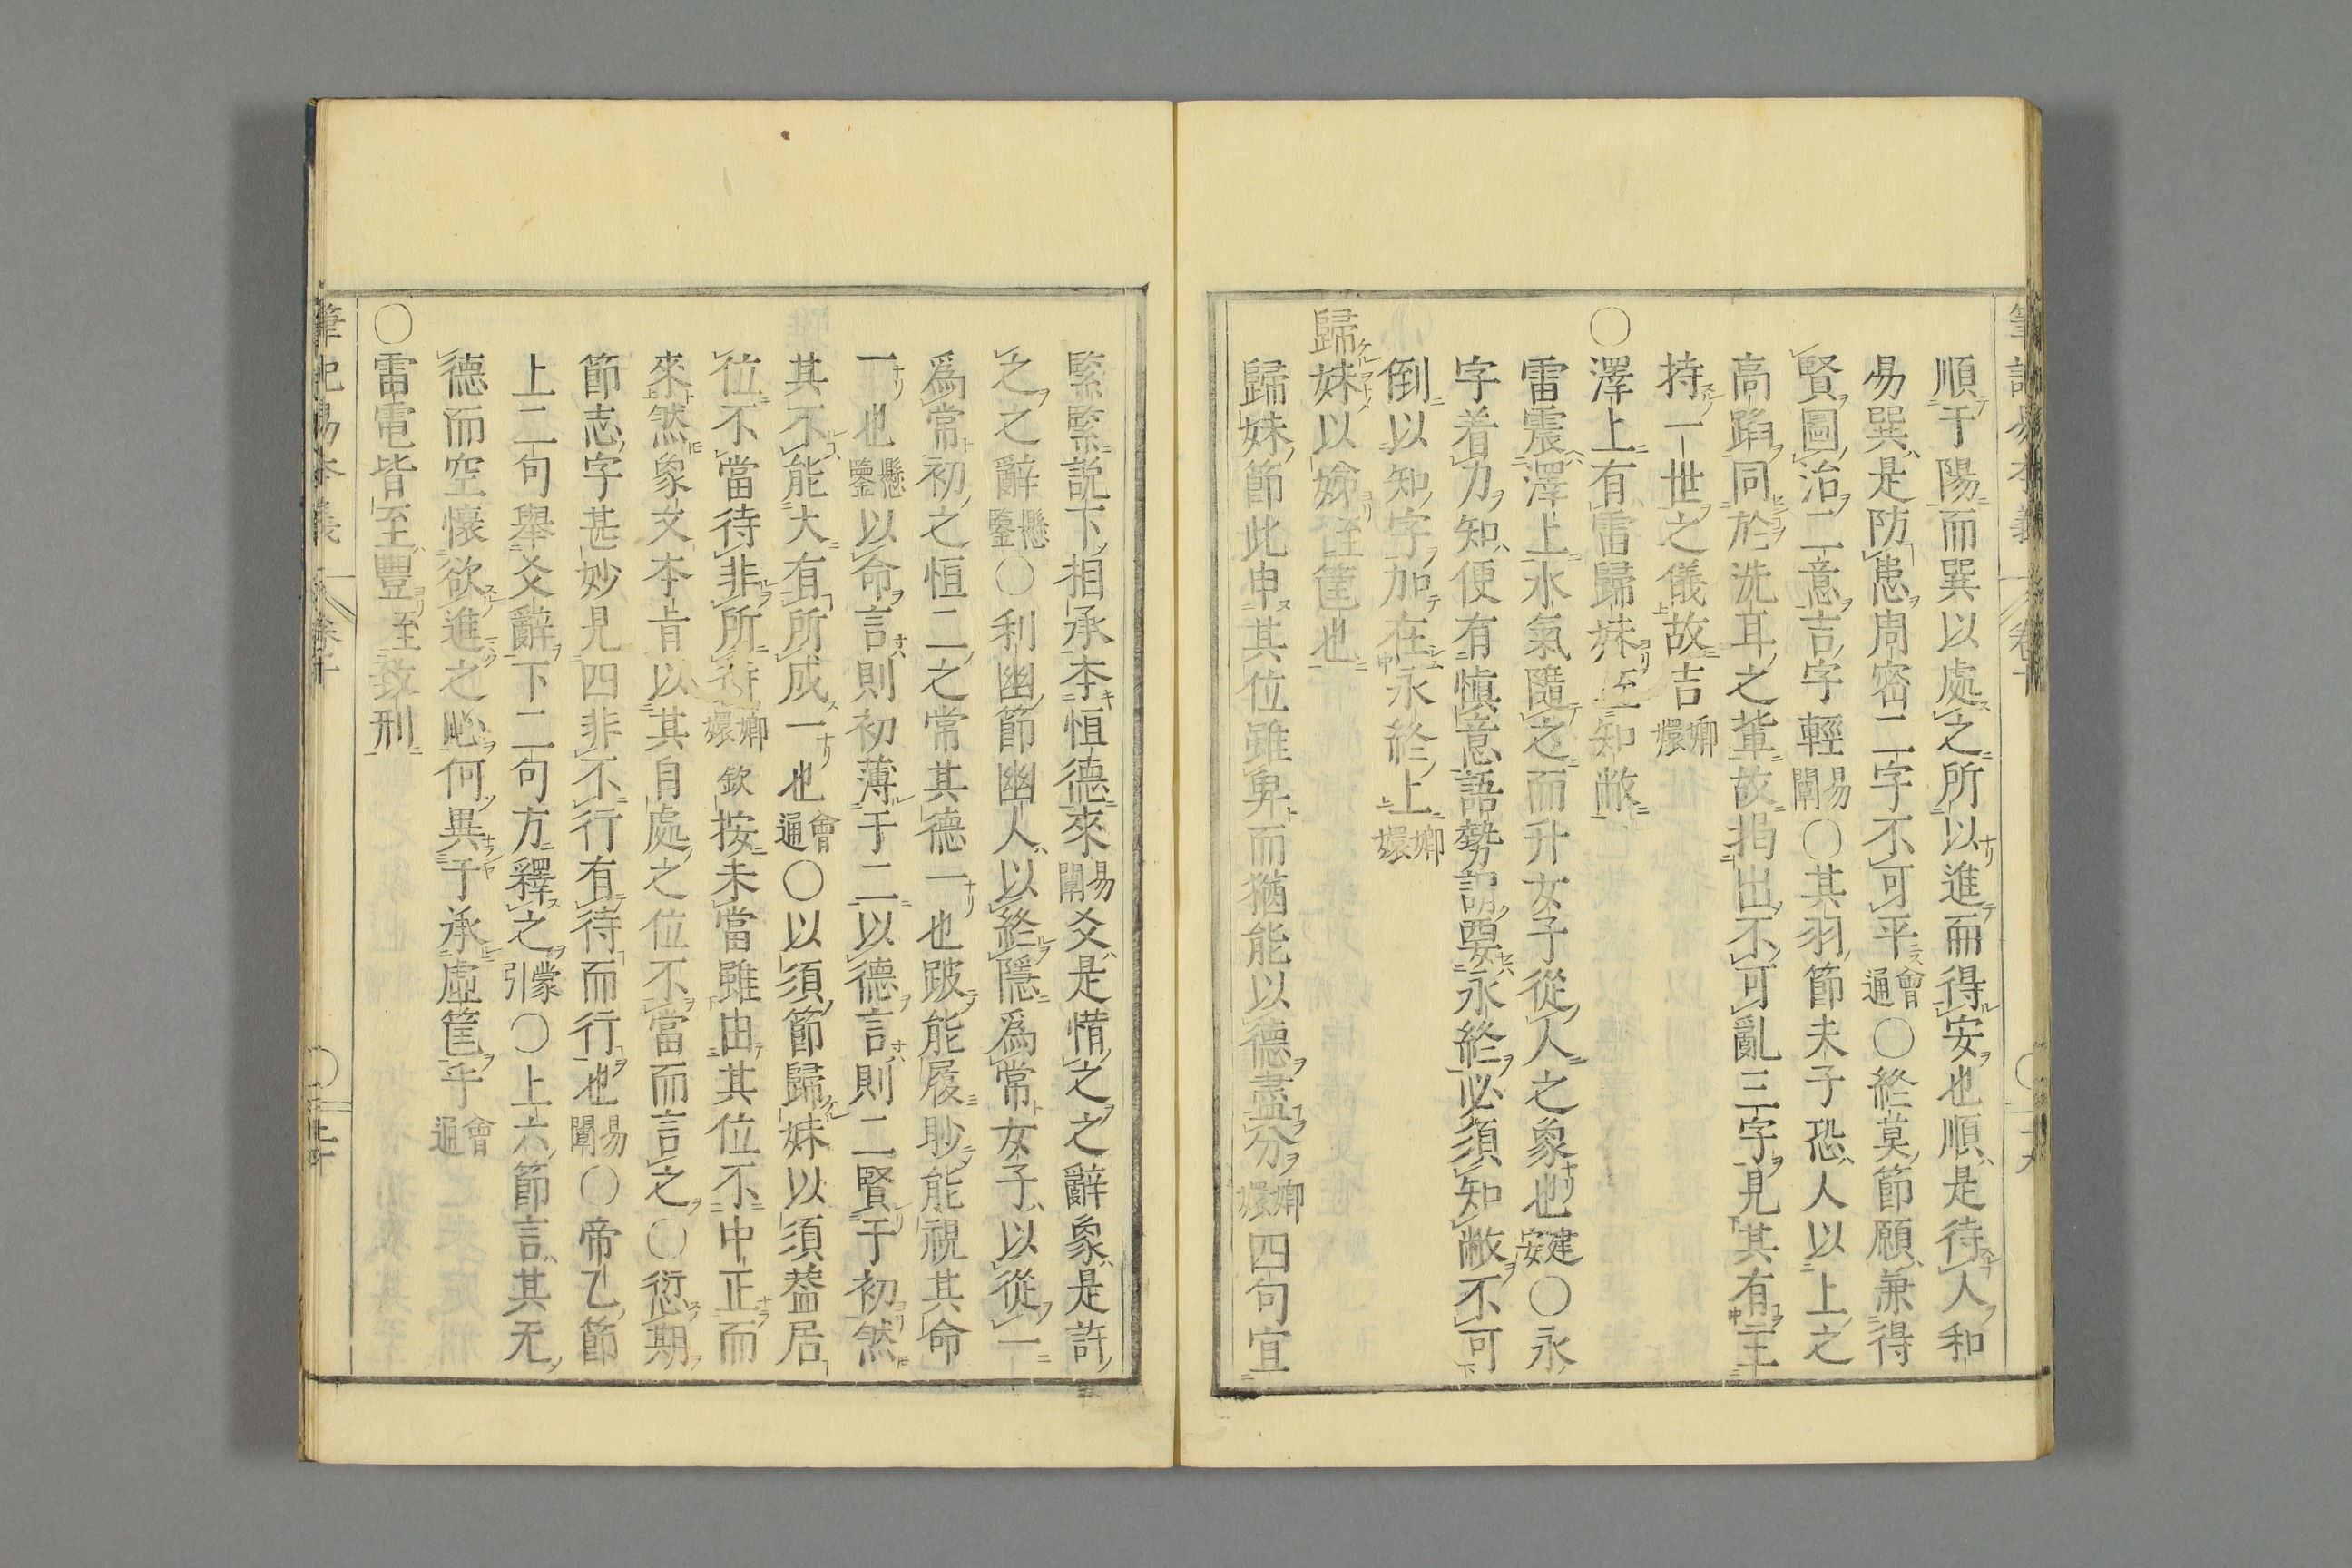 順于陽而巽以處之所以進而得安也順是待人和
易巽是防患周密二字不可平會通〇終莫節願兼得
賢圖治二意吉字輕易闡〇其羽節夫子恐人以上之
高蹈同於洗耳之輩故掲出不可亂三字見其有主
持一世之儀故吉嫏嬛
〇澤上有雷歸妹至知敝
雷震澤上水氣隨之而升女子從人之象也建安〇永
字着力知便有愼意語勢謂要永終必須知敝不可
倒以知字加在永終上嫏嬛
歸妹以娣至筐也
歸妹節此申其位雖卑而猶能以德盡分嫏嬛四句宜
緊緊説下相承本恒德來易闡爻是惜之之辭象是許
之之辭懸鑒〇利幽節幽人以終隱爲常女子以從一
爲常初之恒二之常其德一也跛能履眇能視其命
一也懸鑒以命言則初薄于二以德言則二賢于初然
其不能大有所成一也會通〇以須節歸妹以須葢居
位不當待非所待嫏嬛欽按未當雖由其位不中正而
來然象文本旨以其自處之位不當而言之〇愆期
節志字甚妙見四非不行有待而行也易闡〇帝乙節
上二句舉爻辭下二句方釋之蒙引〇上六節言其无
德而空懷欲進之心何異于承虛筐乎會通
〇雷電皆至豐至致刑